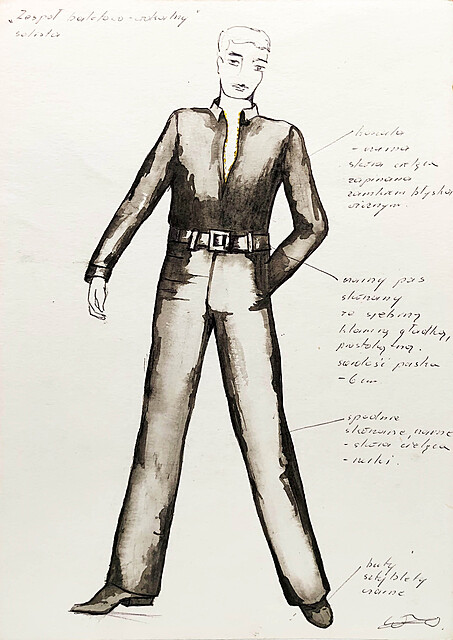 „Zespół baletowo-wokalny"
solista
koszula
- czarna
skóra cielęca
zapinana
zamkiem błyska
wicznym.
czarny pas
skórzany
ze srebrną
klamrą gładką,
prostokątną.
szerokość paska
- 6 cm.
spodnie
skórzane, czarne
- skóra cielęca
- rurki.
buty
sztyblety
czarne